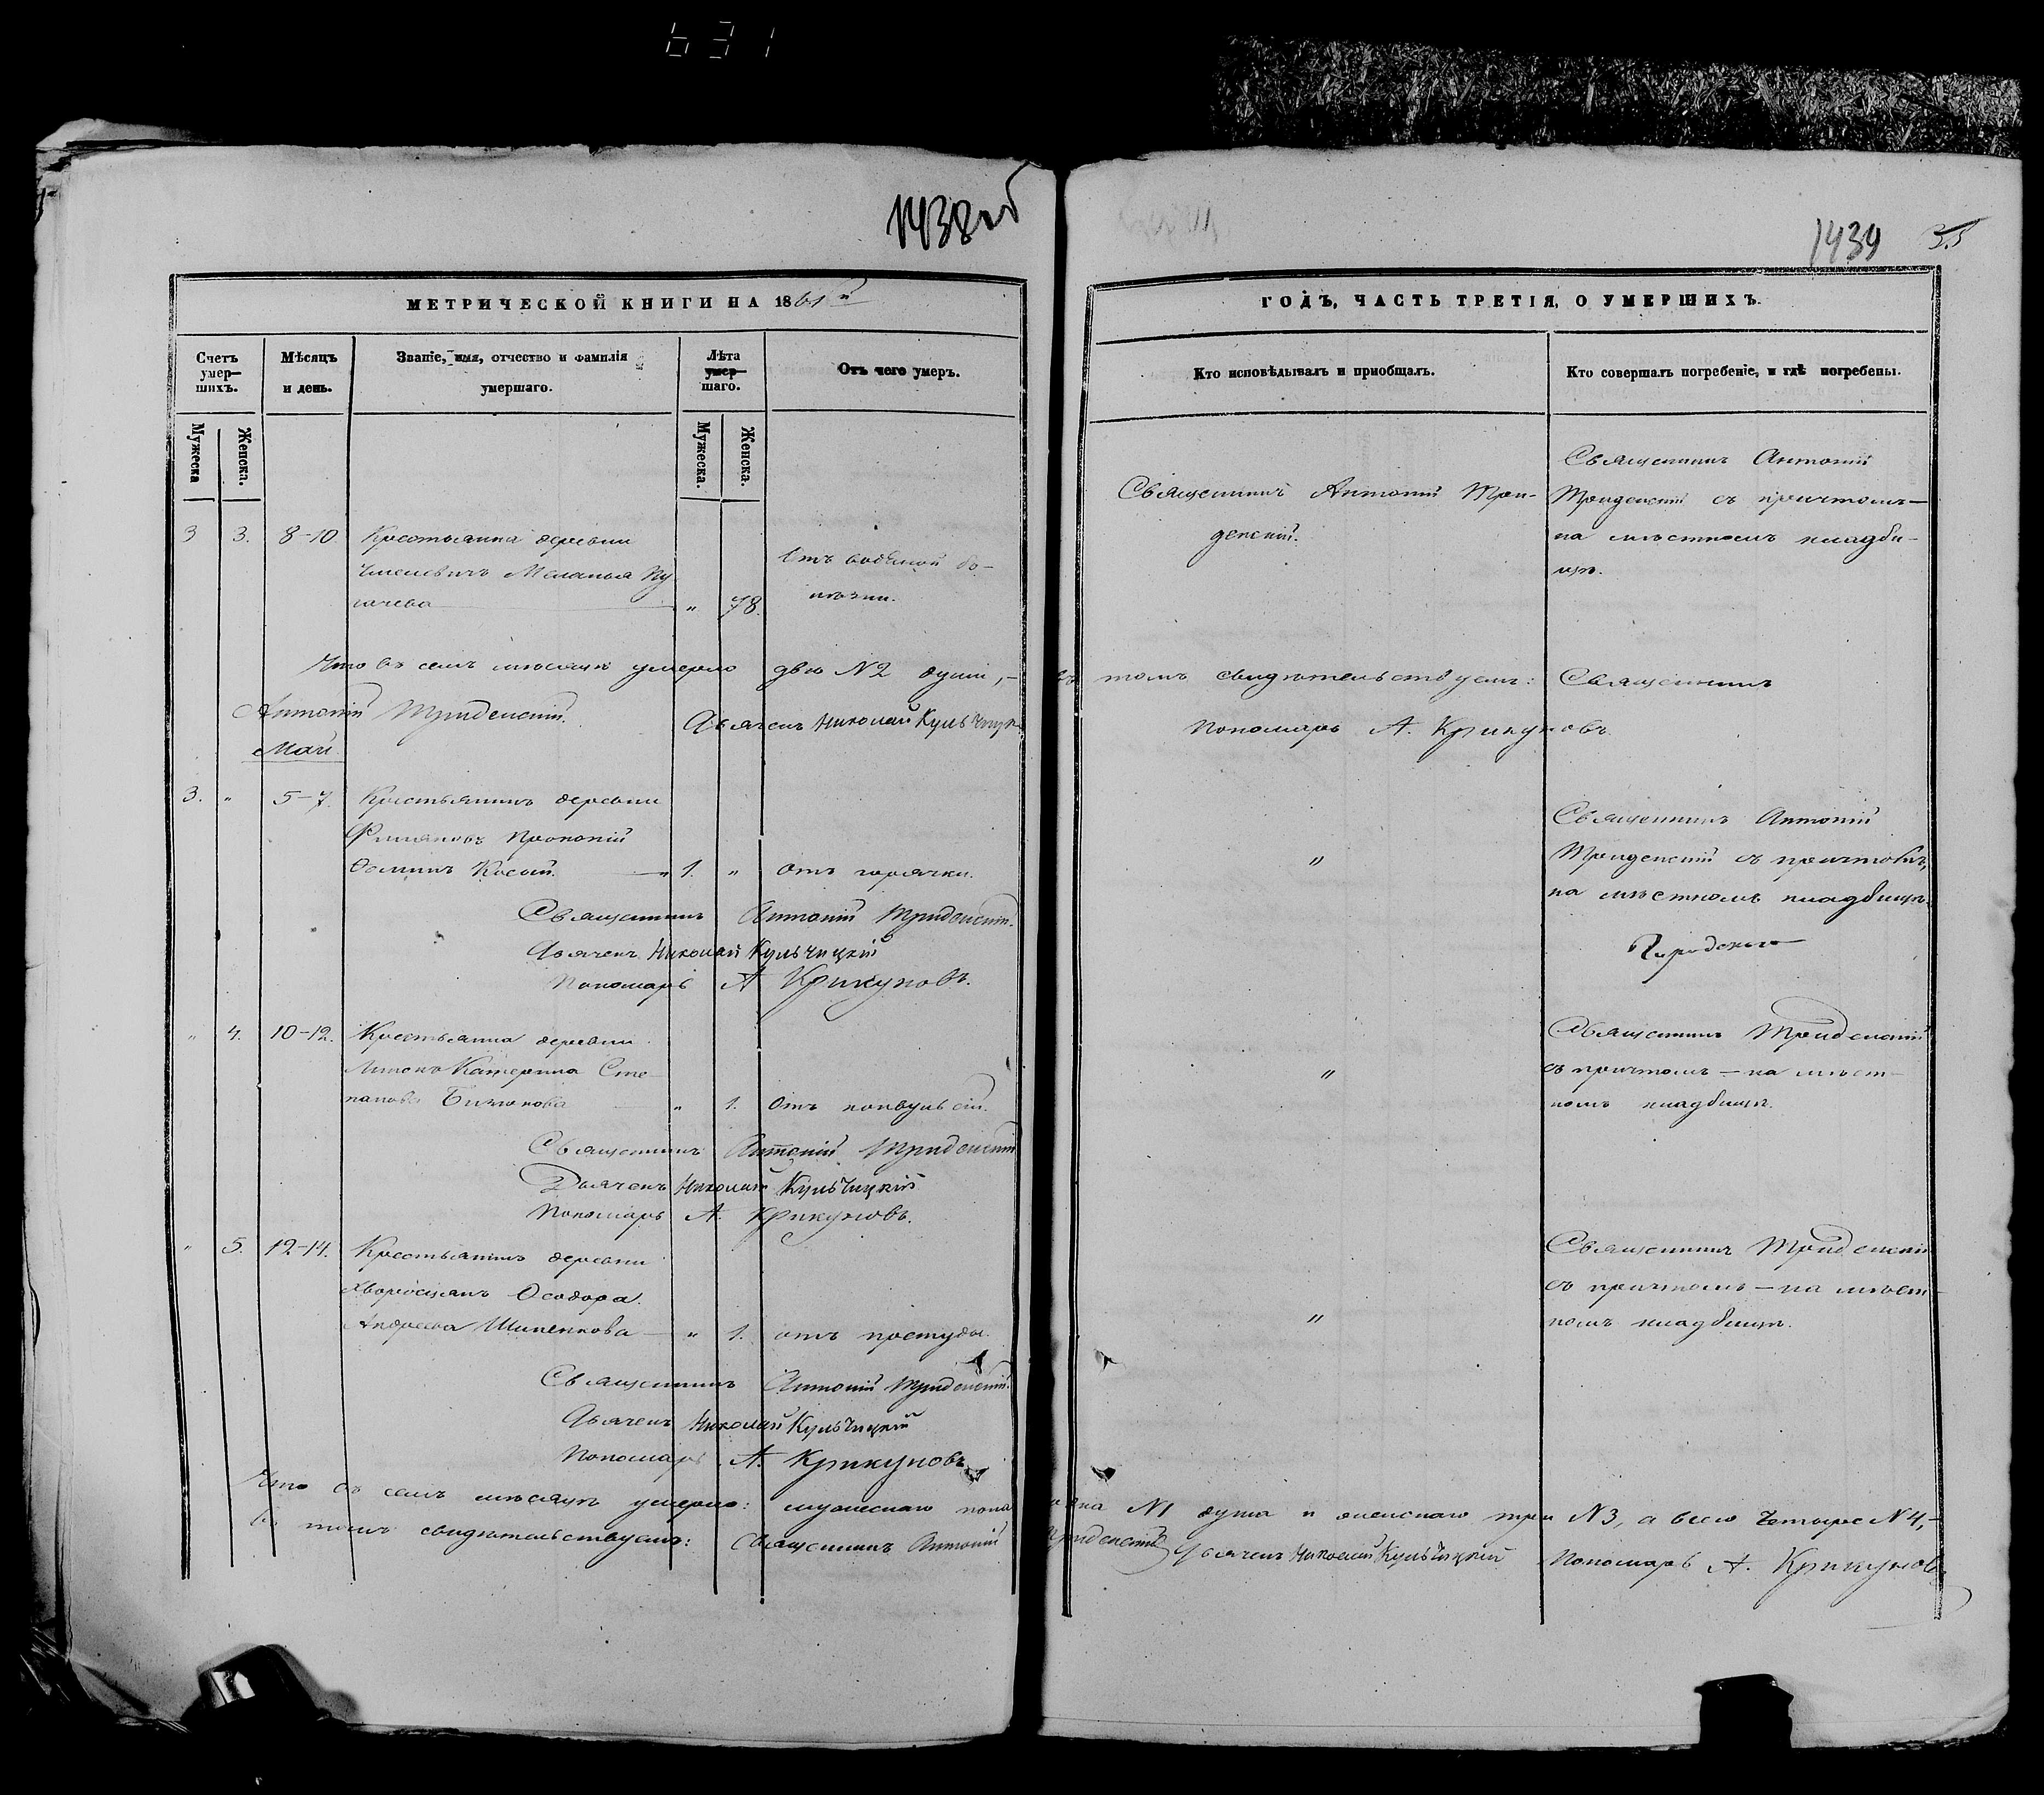 631
1438об
МЕТРИЧЕСКОЙ КНИГИ НА 1861й
Счетъ умер— шихъ.
Мѣсяцъ и день.
Званіе, имя, отчество и фамилія умершаго.
Лѣта умер— шаго.
Отъ чего умеръ.
Мужеска
Женска.
Мужеска.
Женска.
3 3. 8-10 Крестьянка деревни
Меланья Пу
гачева — " 78.
Отъ водяной бо-
лѣзни.
Что въ семъ мѣсяцѣ умерло двѣ №2 души,—
Антоній Тройденскій. Дьячекъ Николай Кульчицк
Май.
3. " 5-7. Крестьянинъ деревни
Прокопій
Косый. — 1. " отъ горячки.
Священникъ Антоній Тройденскій.
Дьячекъ Николай Кульчицкій
Пономарь А Крикуновъ.
" 4. 10-12. Крестьянка деревни
Катерина Сте-
панова — " 1. Отъ конвульсій.
Священникъ Антоній Тройденскій
Дьячекъ Николай Кульчицкій
Пономарь А. Крикуновъ.
" 5. 12-14. Крестьянинъ деревни
Ѳеодора
Андреева Шипенкова — " 1. отъ простуды.
Священникъ Антоній Тройденскій.
Дьячекъ Николай Кульчицкій
Пономарь А. Крикуновъ
Что въ семъ мѣсяцѣ умерло: мужескаго пола
въ томъ свидѣтельствуемъ: Священникъ Антоній
1439 35
ГОДЪ, ЧАСТЬ ТРЕТІЯ, О УМЕРШИХЪ.
Кто исповѣдывалъ и пріобщалъ.
Кто совершалъ погребеніе, и гдѣ погребены.
Священникъ Антоній Трой-
денскій.
Священникъ Антоній
Тройденскій съ причтомъ—
на мѣстномъ кладби-
щѣ.
въ томъ свидѣтельствуемъ: Священникъ
Пономарь А. Крикуновъ.
"
Священникъ Антоній
Тройденскій съ причтомъ,
на мѣстномъ кладбищѣ.
"
Священникъ Тройденскій
съ причтомъ — на мѣст-
номъ кладбищѣ.
"
Священникъ Тройденскій
съ причтомъ — на мѣст-
номъ кладбищѣ.
одна №1 душа и женскаго три №3, а всего четыре №4,—
Тройденскій Дьячекъ Николай Кульчицкій Пономарь А. Крикуновъ